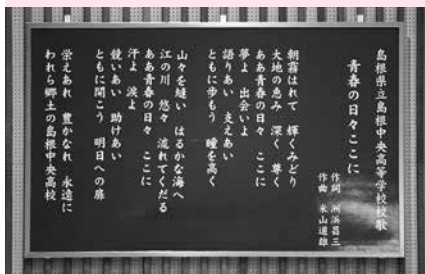 島根県立島根中央高等学校校歌
青春の日々ここに
作詞 洲浜昌三
作曲 米山道雄
朝霧はれて 輝くみどり
大地の恵み 深く 尊く
ああ青春の日々 ここに
夢よ 出会いよ
語りあい 支えあい
ともに歩もう 瞳を高く
山々を縫い はるかな海へ
江の川 悠々 流れてくだる
ああ青春の日々 ここに
汗よ 涙よ
競いあい 助けあい
ともに開こう 明日への扉
栄えあれ 豊かなれ 永遠に
われら郷土の島根中央高校